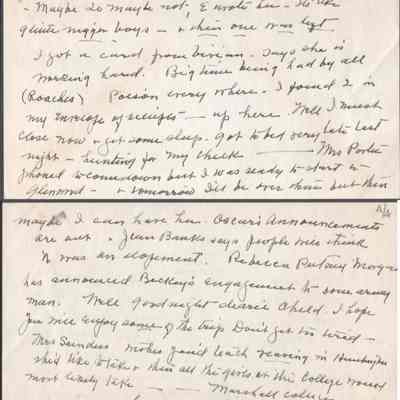 - Maybe so maybe not, I wrote her - He like
quite nigger boys - & this one was left
I got a card from Vivian. Says she is
working hard. Big time being had by all
(Roaches) Poison every where. I found 2 in
my envelope of receipts - up here. Well I must
close now & get some sleep. Got to bed very late last
night - hunting for my check - Mrs Porter
phoned to come down but I was ready to start to
Glenwood - & tomorrow I'll be over there but then
maybe I can have her. Oscar's Announcements
are out & Jean Banks says people will think
it was an elopement. Rebecca Putney Morgan
has announced Becky's engagement to some army
man. Well goodnight dearie Child. I hope
you will enjoy some of the trip. Don't get too tired -
Mrs Sanders wishes you'd teach weaving in Huntington
she'd like to take & then all the girls at this College would
most likely take - - Marshall College